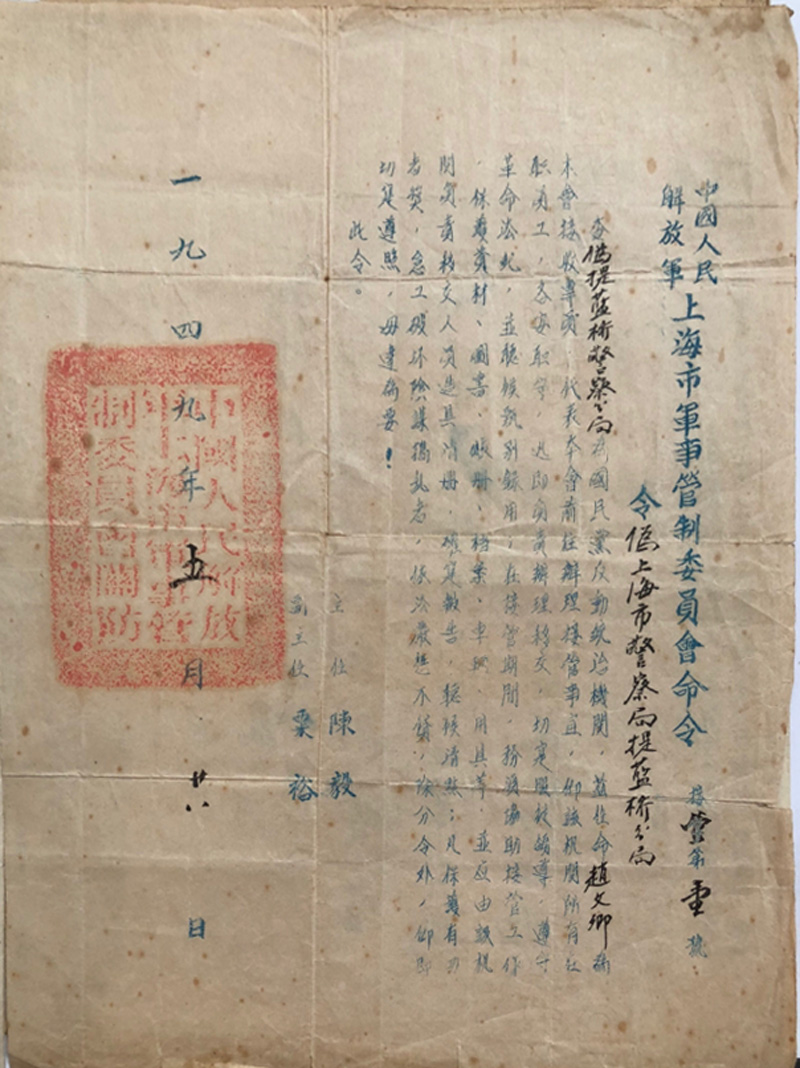 中國人民
解放軍
上海市軍事管制委員會命令
接管第壹號
令偽上海市警察局提籃橋分局
查偽提籃橋警察分局為國民黨反動統治機關，茲任命趙文卿為
本會接收專員，代表本會前往辦理接管事宜，仰該機關所有
職員工，各安職守，迅即負責辦理移交，切實服從領導，遵守
革命法紀，並聽候甄別錄用；在接管期間，務須協助接管工作
，保護資材、圖書、賬冊、檔案、車輛、用具等，並應由該機
關負責移交人員造具清冊，確實報告，聽候清點；凡保護有功
者獎，怠工破壞陰謀搗亂者，依法嚴懲不貸，除分令外，仰即
切實遵照，毋違為要！
此令。
主任 陳毅
副主任 粟裕
一九四九年五月廿八日
中國人民解放
軍上海市軍事管
制委員會關防